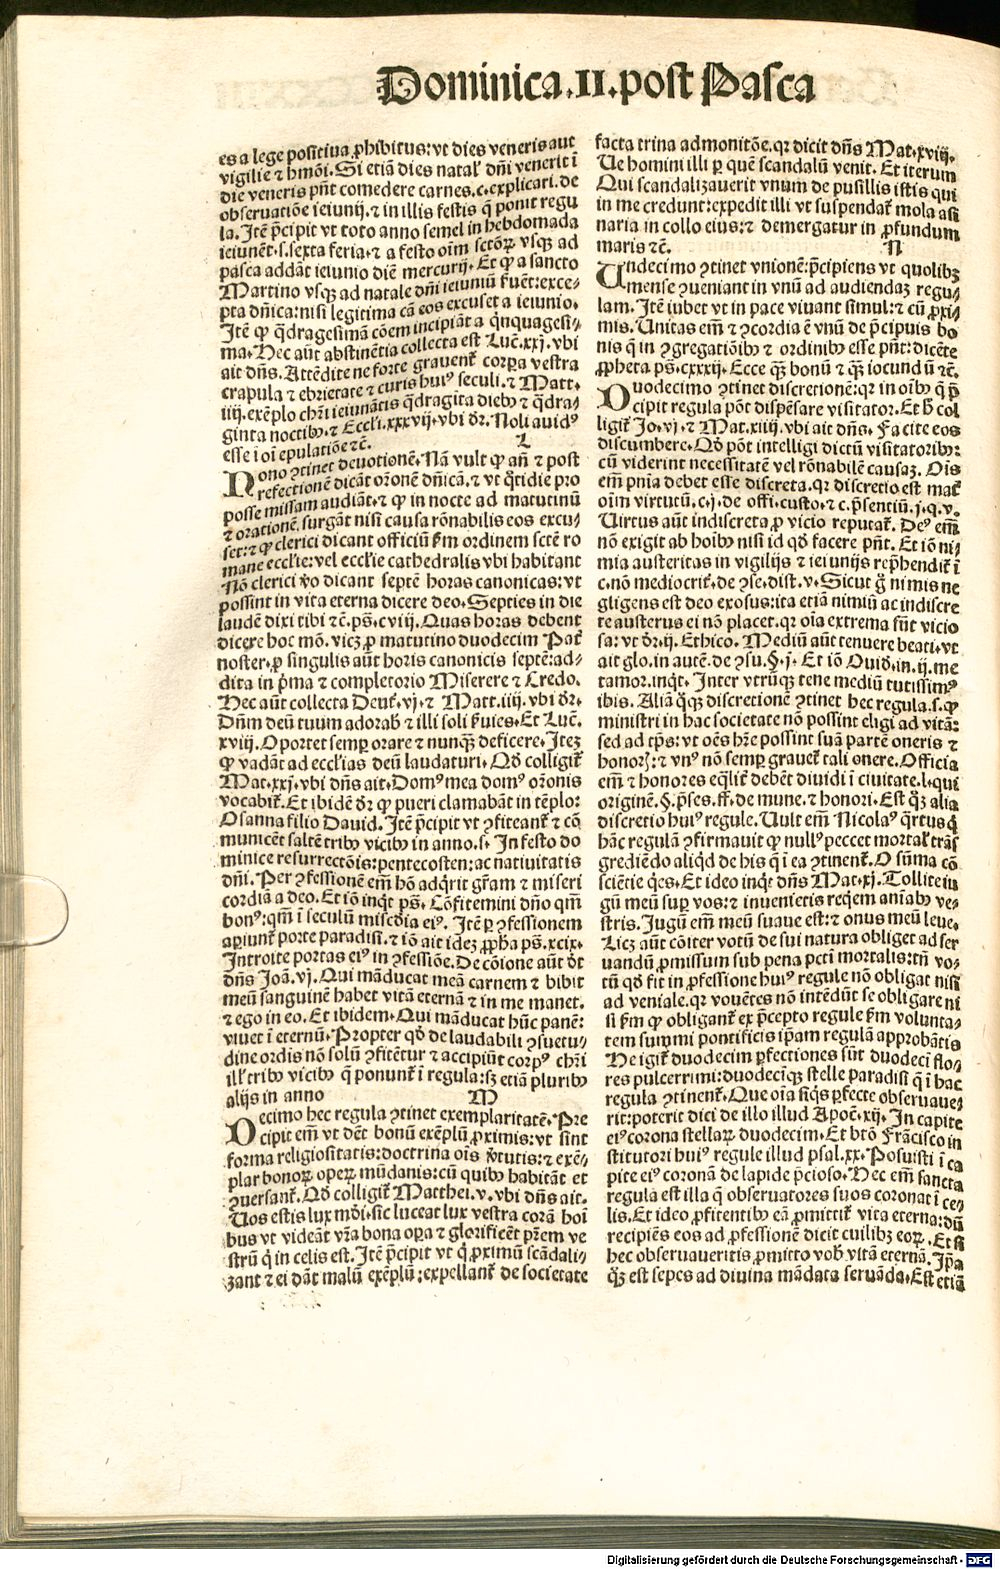 Dominica.II.post Pasca
es a lege positiua ꝓhibitus: vt dies veneris aut
vigilie ⁊ hmõi. Si etiã dies natal' dñi venerit ĩ
die veneris pñt comedere carnes.c.explicari.de
obseruatiõe ieiunij.⁊ in illis festis q̃ ponit regu
la. Itẽ p̃cipit vt toto anno semel in hebdomada
ieiunẽt.s.sexta feria.⁊ a festo oĩm sctõꝝ vsqꝫ ad
pasca addãt ieiunio diẽ mercurij. Et ꝙ a sancto
Martino vsqꝫ ad natale dñi ieiuniũ ẜuẽt: exce-
pta dñica: nisi legitima cã eos excuset a ieiunio.
Itẽ ꝙ q̃dragesimã cõem incipiãt a q̃nquagesi-
ma. Hec aũt abstinẽtia collecta est Luc̃.xxj. vbi
ait dñs. Attẽdite ne forte grauent᷑ corꝑa vestra
crapula ⁊ ebrietate ⁊ curis huiꝰ seculi.⁊ Matt.
iiij. exẽplo chr̃i ieiunãtis q̃dragĩta diebꝰ ⁊ q̃dra-
ginta noctibꝰ.⁊ Eccl'i.xxxvij. vbi dr̃. Noli auidꝰ
esse ĩ oĩ epulatiõe ⁊c̃. L
Nono ꝯtinet deuotionẽ. Nã vult ꝙ añ ⁊ post
refectionẽ dicãt orõnẽ dñicã.⁊ vt q̃tidie pro
posse missam audiãt.⁊ ꝙ in nocte ad matutinũ
⁊ orationẽ, surgãt nisi causa rõnabilis eos excu-
set: ⁊ ꝙ clerici dicant officiũ ẜm ordinem sctẽ ro
mane eccl'ie: vel eccl'ie cathedralis vbi habitant
Nõ clerici ṽo dicant septẽ horas canonicas: vt
possint in vita eterna dicere deo. Septies in die
laudẽ dixi tibi ⁊c̃. ps̃. cviij. Quas horas debent
dicere hoc mõ. vicꝫ ꝓ matutino duodecim Pat᷑
noster. ꝓ singulis aũt horis canonicis septẽ: ad-
dita in p̃ma ⁊ completorio Miserere ⁊ Credo.
Hec aũt collecta Deut᷑. vj. ⁊ Matt. iiij. vbi dr̃.
Dñm deũ tuum adorab̃ ⁊ illi soli ẜuies. Et Luc̃.
xviij. Oportet semꝑ orare ⁊ nunqꝫ̃ deficere. Itẽꝫ
ꝙ vadãt ad eccl'ias deũ laudaturi. Qd̃ colligit᷑
Mat. xxj. vbi dñs ait. Domꝰ mea domꝰ orõnis
vocabit᷑. Et ibidẽ dr̃ ꝙ pueri clamabãt in tẽplo:
Osanna filio Dauid. Itẽ p̃cipit vt ꝯfiteant᷑ ⁊ cõ
municẽt saltẽ tribꝰ vicibꝰ in anno.s. In festo do
minice resurrectõis: pentecosten: ac natiuitatis
dñi. Per ꝯfessionẽ em̃ hõ adq̃rit gr̃am ⁊ miseri
cordia a deo. Et iõ inq̃t ps̃. Cõfitemini dño qm̃
bonꝰ: qm̃ ĩ seculũ misc̃dia eiꝰ. Itẽ ꝑ ꝯfessionem
aꝑiunt᷑ porte paradisi.⁊ iõ ait idẽꝫ ꝓpha ps̃. xcix.
Introite portas eiꝰ in ꝯfessiõe. De cõione aũt dr̃
dñs Joã. vj. Qui mãducat meã carnem ⁊ bibit
meũ sanguinẽ habet vitã eternã ⁊ in me manet.
⁊ ego in eo. Et ibidem. Qui mãducat hũc panẽ:
viuet ĩ eternũ. Propter qd̃ de laudabili ꝯsuetu-
dine ordĩs nõ solũ ꝯfitẽtur ⁊ accipiũt corpꝰ chr̃i
ill' tribꝰ vicibꝰ q̃ ponunt᷑ ĩ regula: sꝫ etiã pluribꝰ
alijs in anno M
Decimo hec regula ꝯtinet exemplaritatẽ. Pre
cipit em̃ vt dẽt bonũ exẽplũ ꝓximis: vt sint
forma religiositatis: doctrina oĩs ṽtutis: ⁊ exẽ-
plar bonoꝝ opeꝝ mũdanis: cũ quibꝰ habitãt et
ꝯuersant᷑. Qd̃ colligit᷑ Matthei. v. vbi dñs ait.
Uos estis lux mũdi. sic luceat lux vestra corã hoĩ
bus vt videãt vr̃a bona oꝑa ⁊ glorificẽt pr̃em ve
strũ q̃ in celis est. Itẽ p̃cipit vt q̃ ꝓximũ scãdali-
zant ⁊ ei dãt malũ exẽplũ: expellant᷑ de societate
facta trina admonitõe. qꝛ dicit dñs Mat. xviij.
Ue homini illi ꝑ quẽ scandalũ venit. Et iterum
Qui scandalizauerit vnum de pusillis istis qui
in me credunt: expedit illi vt suspendat᷑ mola asi
naria in collo eius: ⁊ demergatur in ꝓfundum
maris ⁊c̃. N
Undecimo ꝯtinet vnionẽ: p̃cipiens vt quolibꝫ
mense ꝯueniant in vnũ ad audiendaꝫ regu-
lam. Itẽ iubet vt in pace viuant simul: ⁊ cũ ꝓxi-
mis. Unitas em̃ ⁊ ꝯcordia ẽ vnũ de p̃cipuis bo
nis q̃ in ꝯgregatiõibꝰ ⁊ ordinibꝰ esse pñt: dicẽte
ꝓpheta ps̃. cxxxij. Ecce qꝫ̃ bonũ ⁊ qꝫ̃ iocundũ ⁊c̃.
Duodecimo ꝯtinet discretionẽ: qꝛ in oĩbꝰ q̃ p̃
cipit regula põt dispẽsare visitator. Et h̃ col
ligit᷑ Jo. vj. ⁊ Mat. xiiij. vbi ait dñs. Facite eos
discumbere. Qd̃ põt intelligi dictũ visitatoribꝰ:
cũ viderint necessitatẽ vel rõnabilẽ causaꝫ. Oĩs
em̃ pñia debet esse discreta. qꝛ discretio est mat᷑
oĩm virtutũ. c.j. de offi. custo. ⁊ c. p̃sentiũ. j. q. v.
Uirtus aũt indiscreta ꝓ vicio reputat᷑. Deꝰ em̃
nõ exigit ab hoĩbꝰ nisi id qd̃ facere pñt. Et iõ ni-
mia austeritas in vigilijs ⁊ ieiunijs rep̃hendit᷑ ĩ
c. nõ mediocrit᷑. de ꝯse. dist. v. Sicut g̃ nimis ne
gligens est deo exosus: ita etiã nimiũ ac indiscre
te austerus ei nõ placet. qꝛ oĩa extrema sũt vicio
sa: vt dr̃. ij. Ethico. Mediũ aũt tenuere beati. vt
ait glo. in autẽ. de ꝯsu. §. j. Et iõ Ouid̃. in. ij. me
tamor. inq̃t. Inter vtrũqꝫ tene mediũ tutissimꝰ
ibis. Aliã q̃qꝫ discretionẽ ꝯtinet hec regula.s. ꝙ
ministri in hac societate nõ possint eligi ad vitã:
sed ad tp̃s: vt oẽs hr̃e possint suã partẽ oneris ⁊
honoꝝ: ⁊ vnꝰ nõ semꝑ grauet᷑ tali onere. Officia
em̃ ⁊ honores eq̃lit᷑ debẽt diuidi ĩ ciuitate. l. qui
originẽ. §. p̃ses. ff. de mune. ⁊ honori. Est q̃ꝫ alia
discretio huiꝰ regule. Uult em̃ Nicolaꝰ q̃rtus q̃
hãc regulã ꝯfirmauit ꝙ nullꝰ peccet mortal᷑ trãs
grediẽdo aliqd̃ de his q̃ ĩ ea ꝯtinent᷑. O sũma cõ
sciẽtie q̃es. Et ideo inq̃t dñs Mat. xj. Tollite iu
gũ meũ suꝑ vos: ⁊ inuenietis req̃em aĩabꝰ ve-
stris. Jugũ em̃ meũ suaue est: ⁊ onus meũ leue.
Licꝫ aũt cõiter votũ de sui natura obliget ad ser
uandũ ꝓmissum sub pena pctĩ mortalis: tñ vo-
tũ qd̃ fit in ꝓfessione huiꝰ regule nõ obligat nisi
ad veniale. qꝛ vouẽtes nõ intẽdũt se obligare ni
si ẜm ꝙ obligant᷑ ex p̃cepto regule ẜm volunta-
tem summi pontificis ip̃am regulã approbãtis
He igit᷑ duodecim ꝑfectiones sũt duodecĩ flo-
res pulcerrimi: duodecĩqꝫ stelle paradisi q̃ ĩ hac
regula ꝯtinent᷑. Que oĩa siq̃s ꝑfecte obseruaue-
rit: poterit dici de illo illud Apoc̃. xij. In capite
eiꝰ corona stellaꝝ duodecim. Et btõ Frãcisco in
stitutori huiꝰ regule illud psal. xx. Posuisti ĩ ca
pite eiꝰ coronã de lapide p̃cioso. Hec em̃ sancta
regula est illa q̃ obseruatores suos coronat ĩ ce-
lis. Et ideo ꝓfitentibꝰ eã ꝓmittit᷑ vita eterna: dũ
recipiẽs eos ad ꝓfessionẽ dicit cuilibꝫ eoꝝ. Et si
hec obseruaueritis ꝓmitto vob̃ vitã eternã. Ip̃a
q̃ꝫ est sepes ad diuina mãdata seruãda. Est etiã
Digitalisierung gefördert durch die Deutsche Forschungsgemeinschaft - DFG